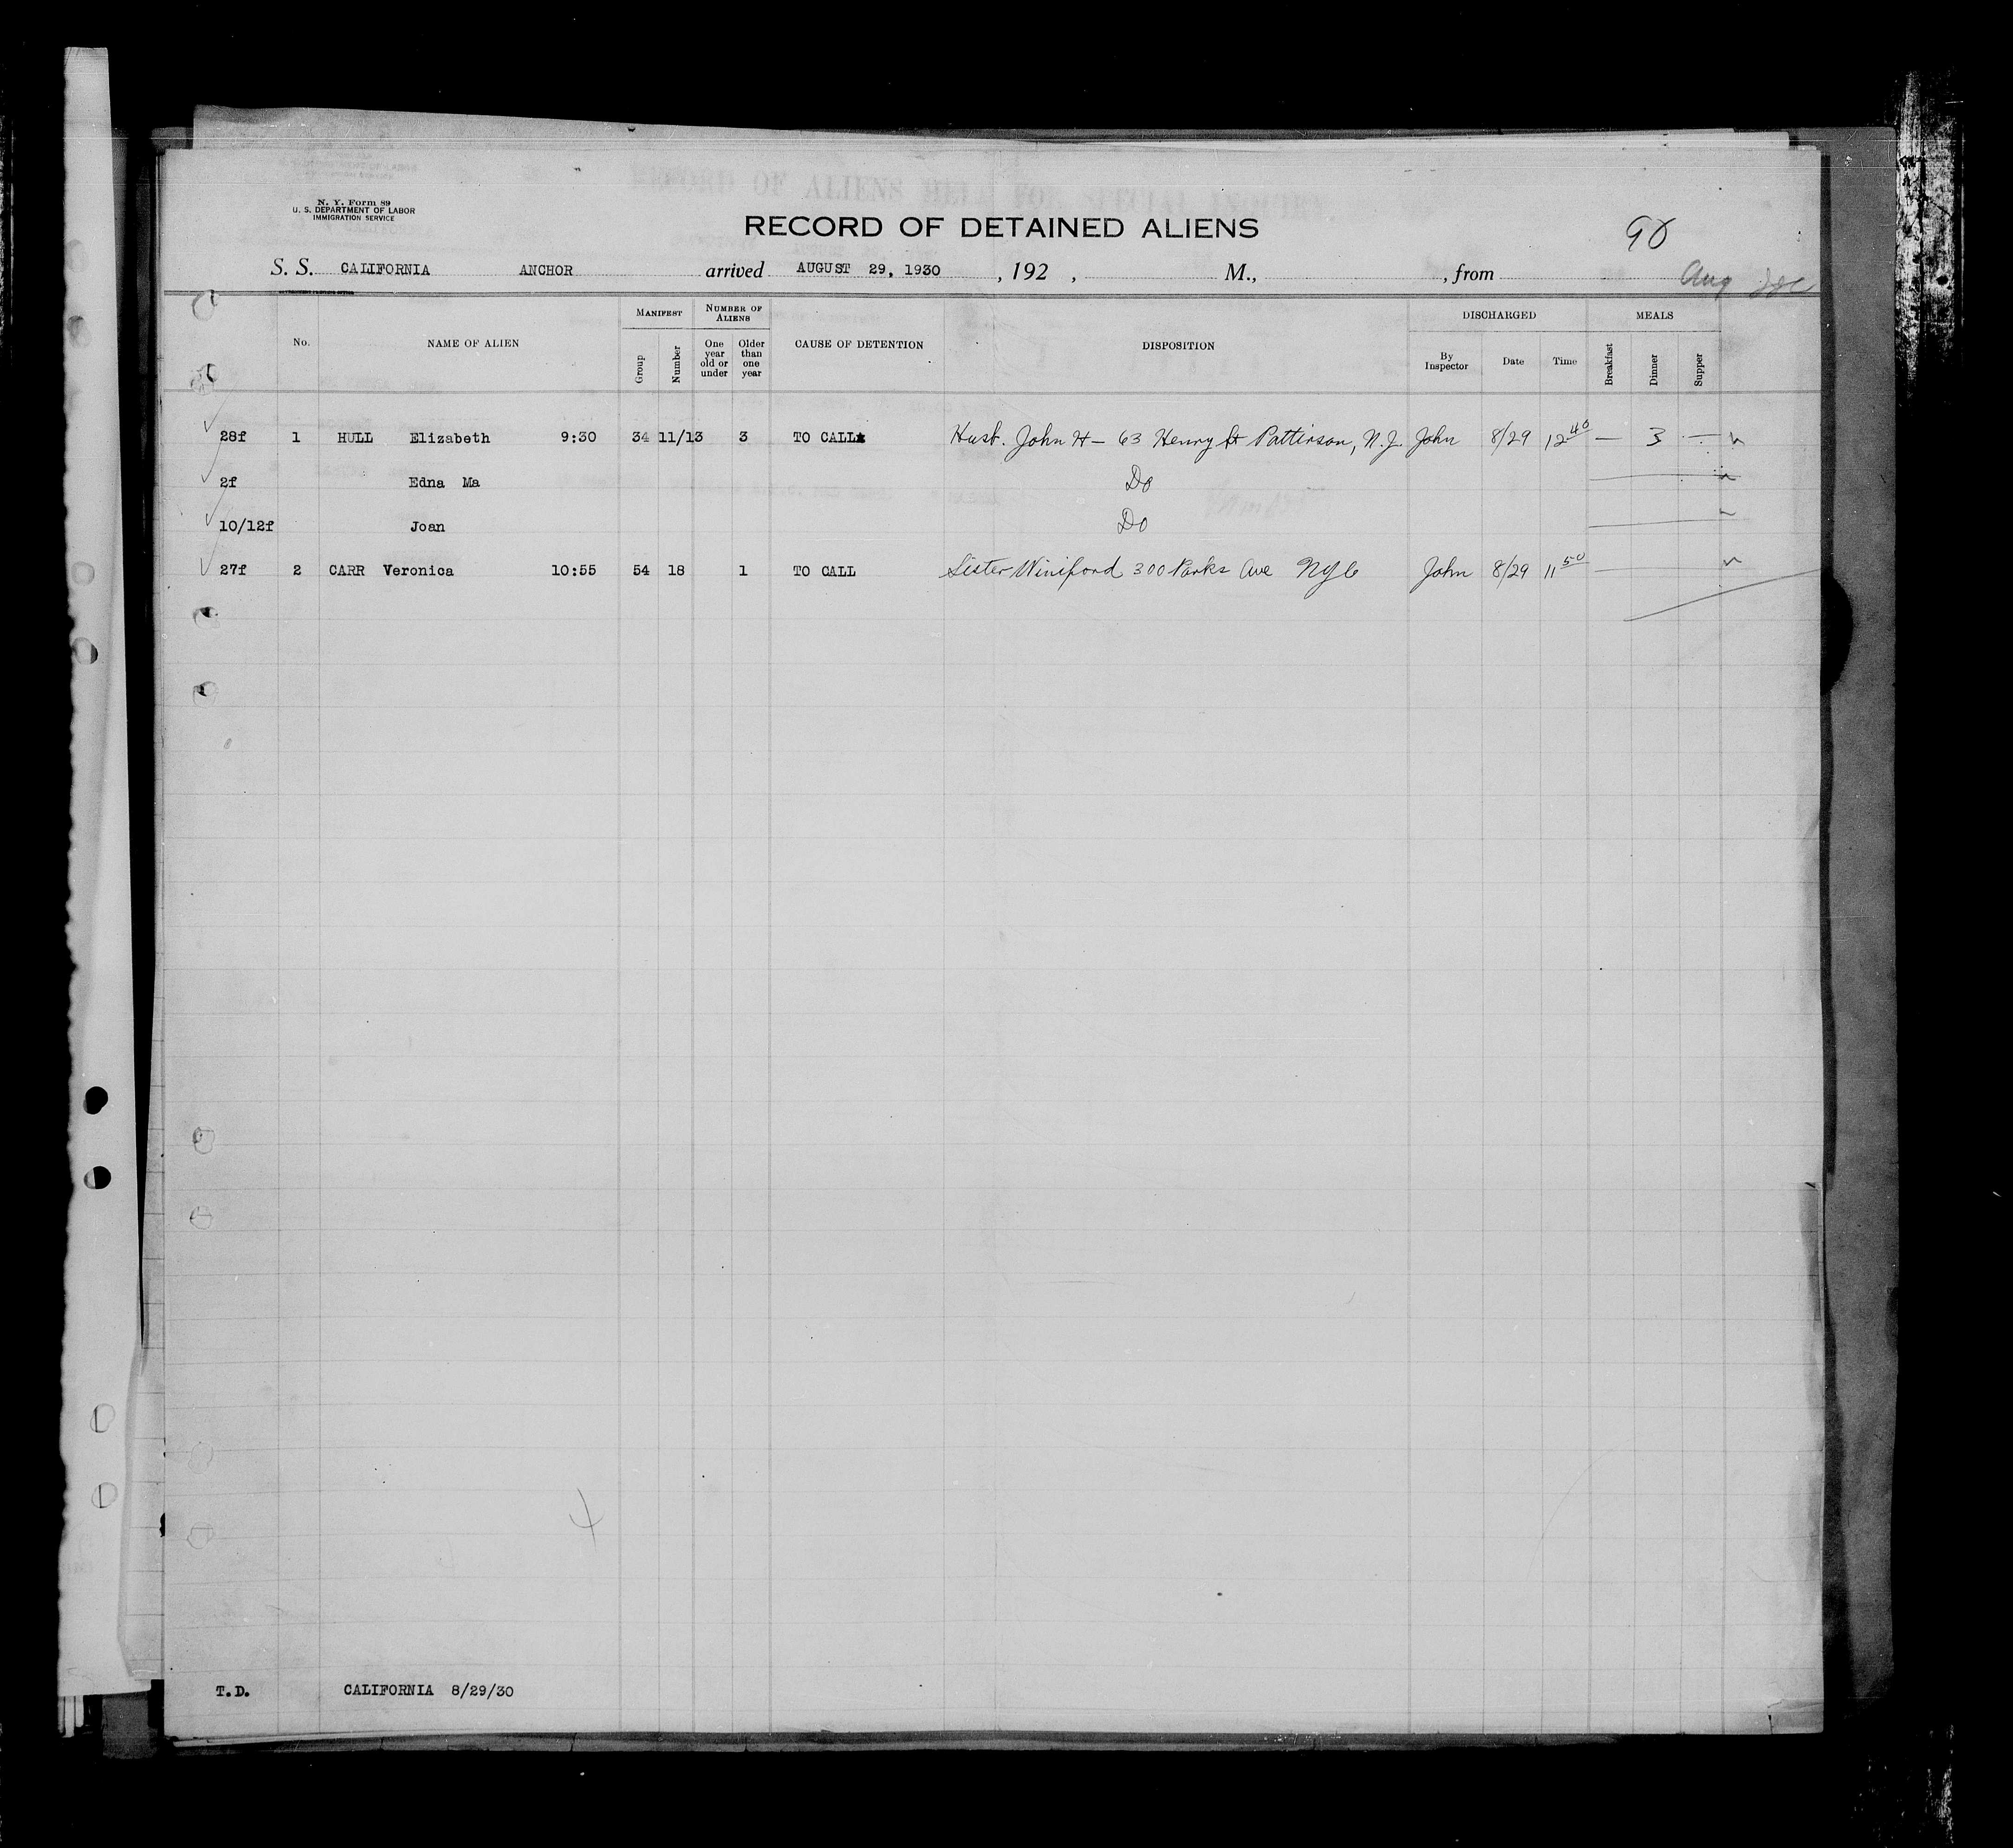 N. Y. Form 89
U. S. DEPARTMENT OF LABOR
IMMIGRATION SERVICE
RECORD OF DETAINED ALIENS
90
S. S. CALIFORNIA ANCHOR arrived AUGUST 29, 1930 , 192 , M., , from
Aug
No. NAME OF ALIEN MANIFEST Group Number NUMBER OF ALIENS One year old or under Older than one year CAUSE OF DETENTION DISPOSITION DISCHARGED By Inspector Date Time MEALS Breakfast Dinner Supper
28f 1 HULL Elizabeth 9:30 34 11/13 3 TO CALL Husb. John H - 63 Henry St Patterson, N.J. John 8/29 12 40 — 3 —
2f Edna Ma Do
10/12f Joan Do
27f 2 CARR Veronica 10:55 54 18 1 TO CALL Sister Winiford 300 Parks Ave NYC John 8/29 11 50
4
T.D. CALIFORNIA 8/29/30